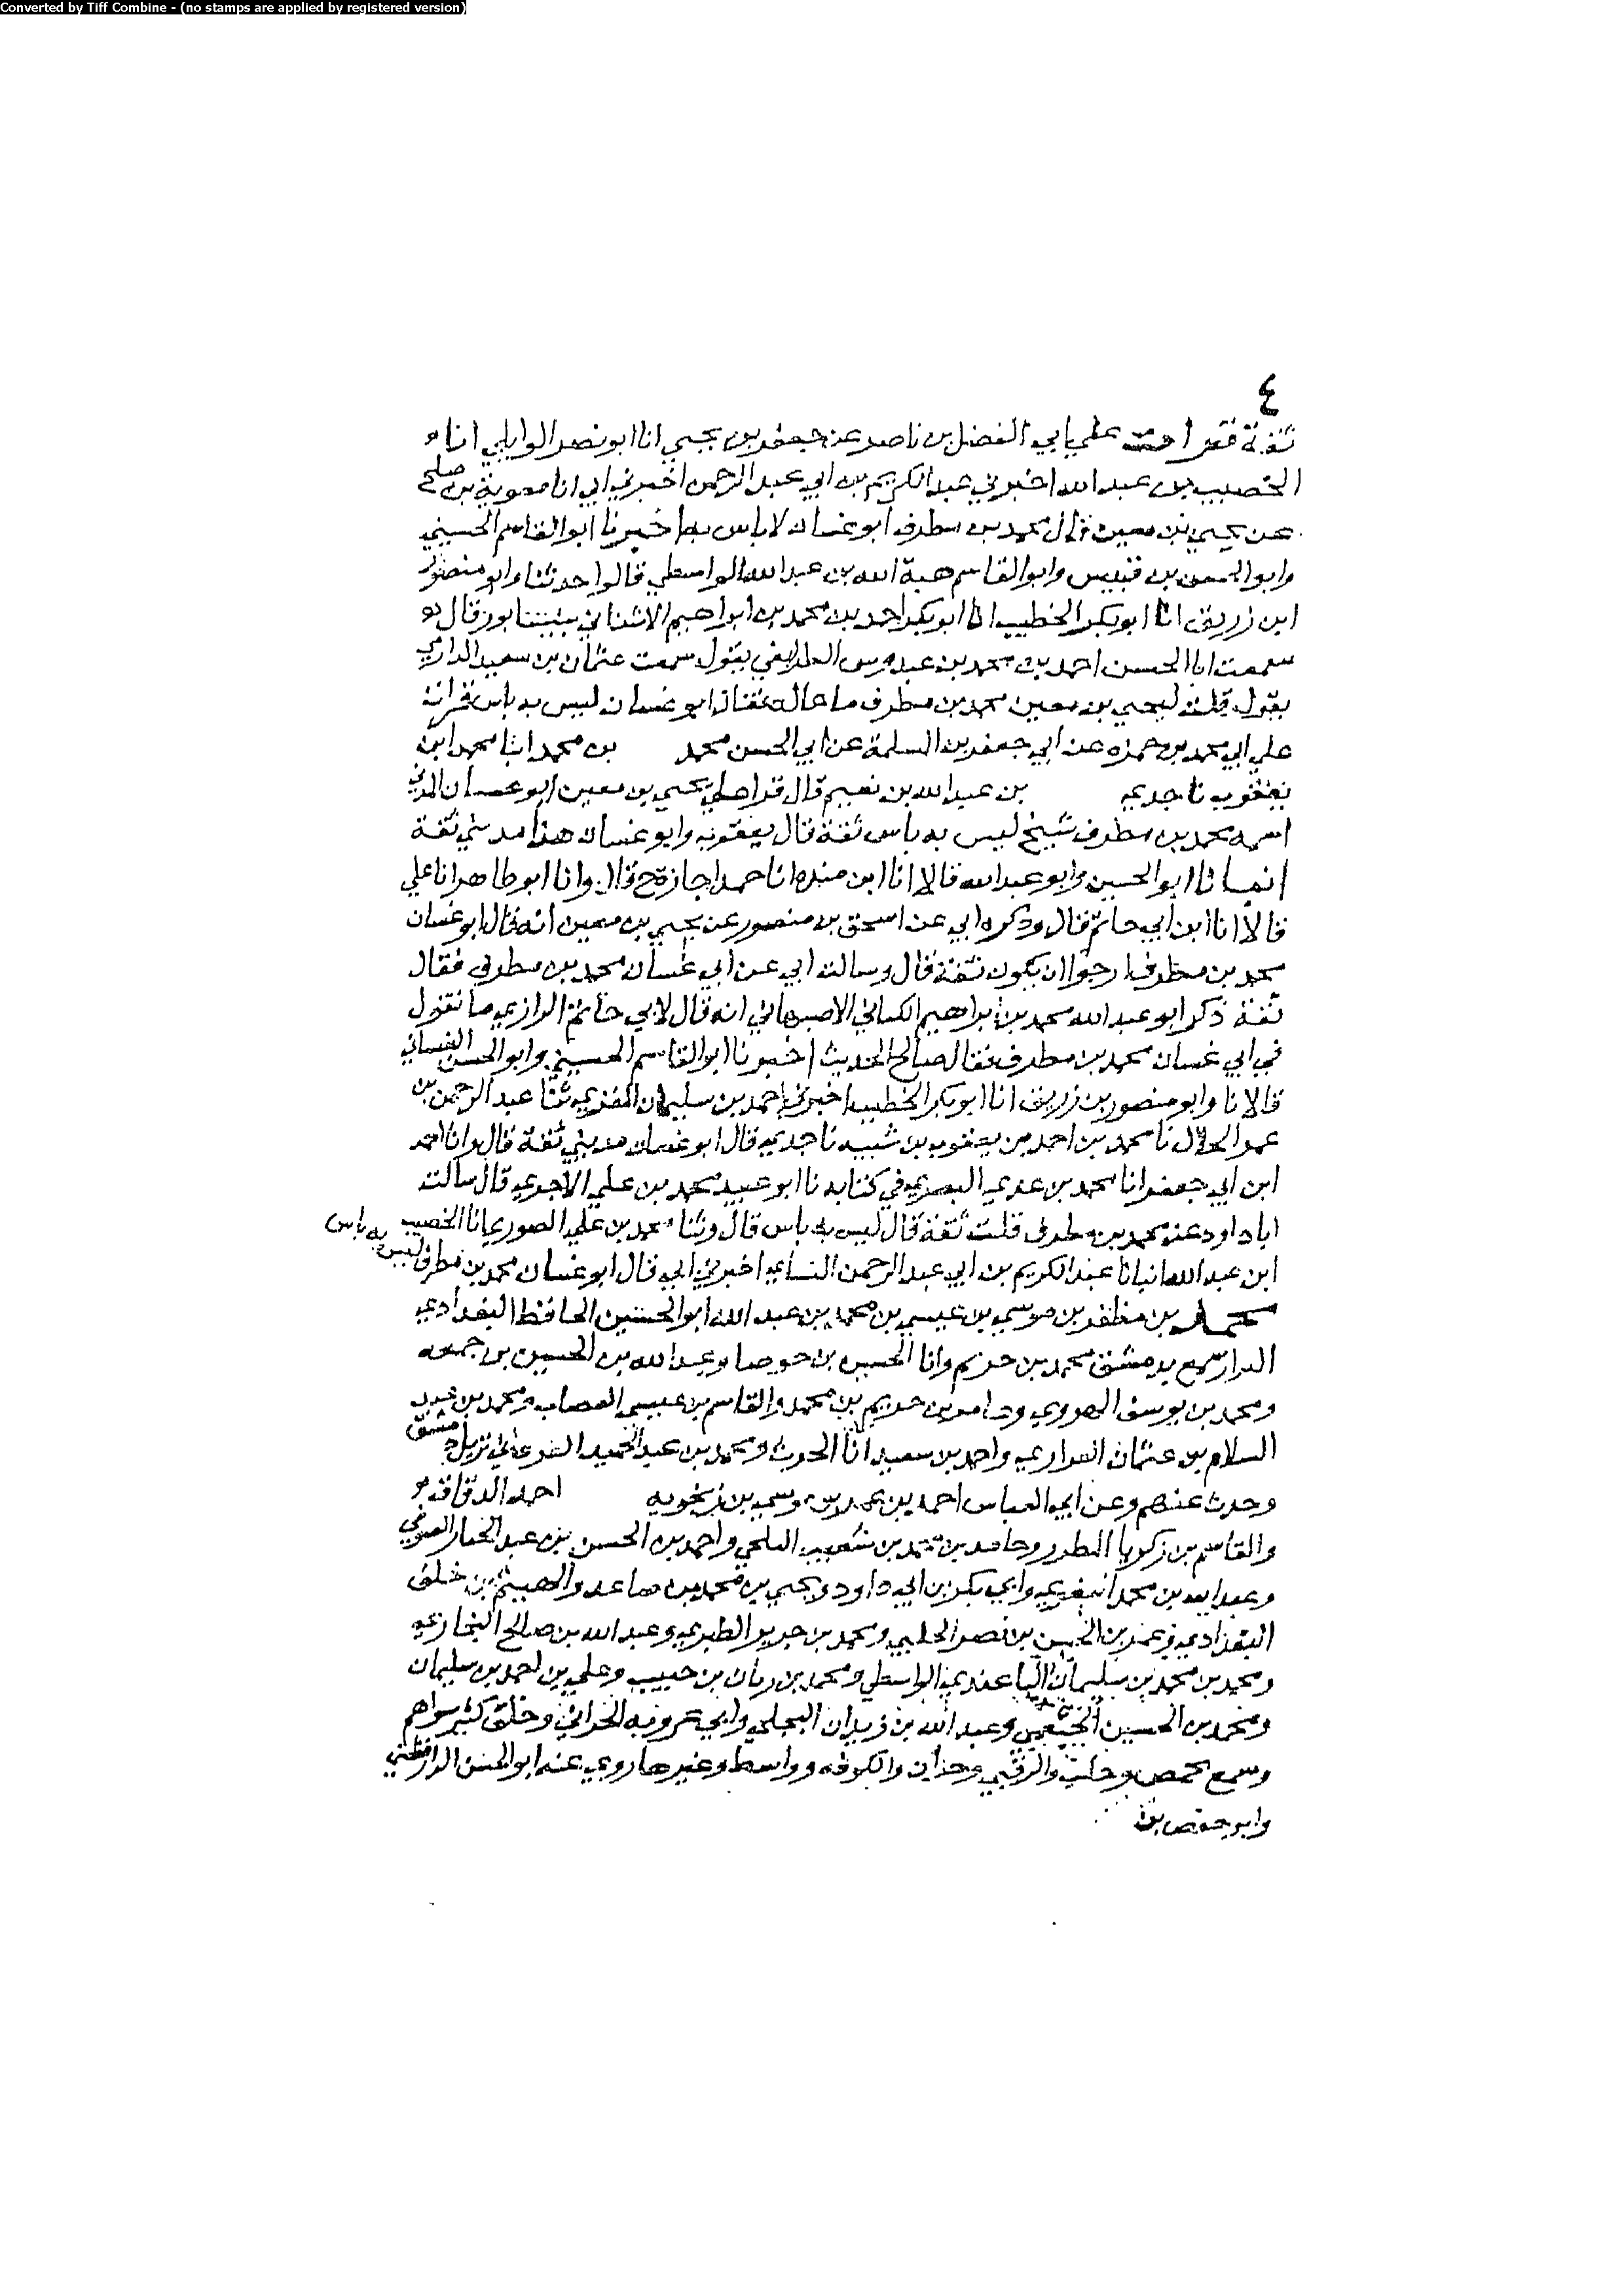 Converted by Tiff Combine - (no stamps are applied by registered version)
٤
ثقة قرات علي ابي الفضل بن ناصر عن جعفر بن يحيي انا ابو نصر الوايلي انا
الخصيب بن عبد الله اخبرني عبد الكريم بن ابي عبد الرحمن اخبرني ابي انا معوية بن صلح
عن يحيي بن معين قال محمد بن مطرف ابو غسان لا باس به اخبرنا ابو القاسم الحسيني
وابو الحسن بن قبيس وابو القاسم هبة الله بن عبد الله الواسطي قالوا حدثنا وابو منصور
ابن زريق انا ابو بكر الخطيب انا ابو بكر احمد بن محمد بن ابراهيم الاشناني بنيسابور قال
سمعت ابا الحسن احمد بن محمد بن عبدوس الطرايفي يقول سمعت عثمان بن سعيد الدارمي
يقول قلت ليحيي بن معين محمد بن مطرف ما حاله فقال ابو غسان ليس به باس قرات
علي ابي محمد بن حمزه عن ابي جعفر بن المسلمة عن ابي الحسن محمد بن محمد انا محمد ابن
يعقوب نا جدي بن عبد الله بن نعيم قال قرا علي يحيي بن معين ابو غسان المدني
اسمه محمد بن مطرف شيخ ليس به باس ثقة قال يعقوب وابو غسان هذا مديني ثقة
انبانا ابو الحسين وابو عبد الله قالا انا ابن منده انا حمد اجازة ح قال وانا ابو طاهر انا علي
قالا انا ابن ابي حاتم قال وذكره ابي عن اسحق بن منصور عن يحيي بن معين انه قال ابو غسان
محمد بن مطرف ارجوا ان يكون ثقة قال وسالت ابي عن ابي غسان محمد بن مطرف فقال
ثقة ذكر ابو عبد الله محمد بن ابراهيم الكناني الاصبهاني انه قال لابي حاتم الرازي ما تقول
في ابي غسان محمد بن مطرف فقال صالح الحديث اخبرنا ابو القاسم الحسيني وابو الحسن الغساني
قالا نا وابو منصور بن زريق انا ابو بكر الخطيب اخبرني احمد بن سليمان المقري ثنا عبد الرحمن بن
عمر الخلال نا محمد بن احمد بن يعقوب بن شيبه نا جدي قال ابو غسان مديني ثقة قال وانا احمد
ابن ابي جعفر انا محمد بن عدي البصري في كتابه نا ابو عبيد محمد بن علي الاجري قال سالت
ابا داود عن محمد بن مطرف قلت ثقة قال ليس به باس قال وثنا محمد بن علي الصوري انا الخصيب
ابن عبد الله انبانا عبد الكريم بن ابي عبد الرحمن النساي اخبرني ابي قال ابو غسان محمد بن مطرف ليس به باس
محمد بن مظفر بن موسي بن عيسي بن محمد بن عبد الله ابو الحسين الحافظ البغدادي
البزاز سمع بدمشق محمد بن خريم وابا الحسن بن جوصا وعبد الله بن الحسين بن جمعه
ومحمد بن يوسف الهروي بن محمد والقاسم بن عيسي العصاب ومحمد بن عبد
السلام بن عثمان الفزاري واحمد بن سعيد ابا الحرث ومحمد بن عبد الحميد الفرغاني نزيل دمشق
وحدث عنهم وعن ابي العباس احمد بن بن زنجويه احمد الدقاق
والقاسم بن زكريا المطرز وحامد بن محمد بن شعيب البلخي واحمد بن الحسن بن عبد الجبار الصوفي
وعبد الله بن محمد البغوي وابي بكر بن ابي داود ويحيي بن محمد بن صاعد والهيثم بن خلف
البغدادي وعمر بن الحسن بن نصر الحلبي ومحمد بن جرير الطبري وعبد الله بن صالح البخاري
ومحمد بن محمد بن سليمان الباغندي الواسطي ومحمد بن زبان بن حبيب وعلي بن احمد بن سليمان
ومحمد بن الحسين الخثعمي وعبد الله بن زيدان البجلي وابي عروبه الحراني وخلق كثير سواهم
وسمع بحمص وحلب والرقه وحران والكوفه وواسط وغيرها روي عنه ابو الحسن الدارقطني
وابو حفص بن